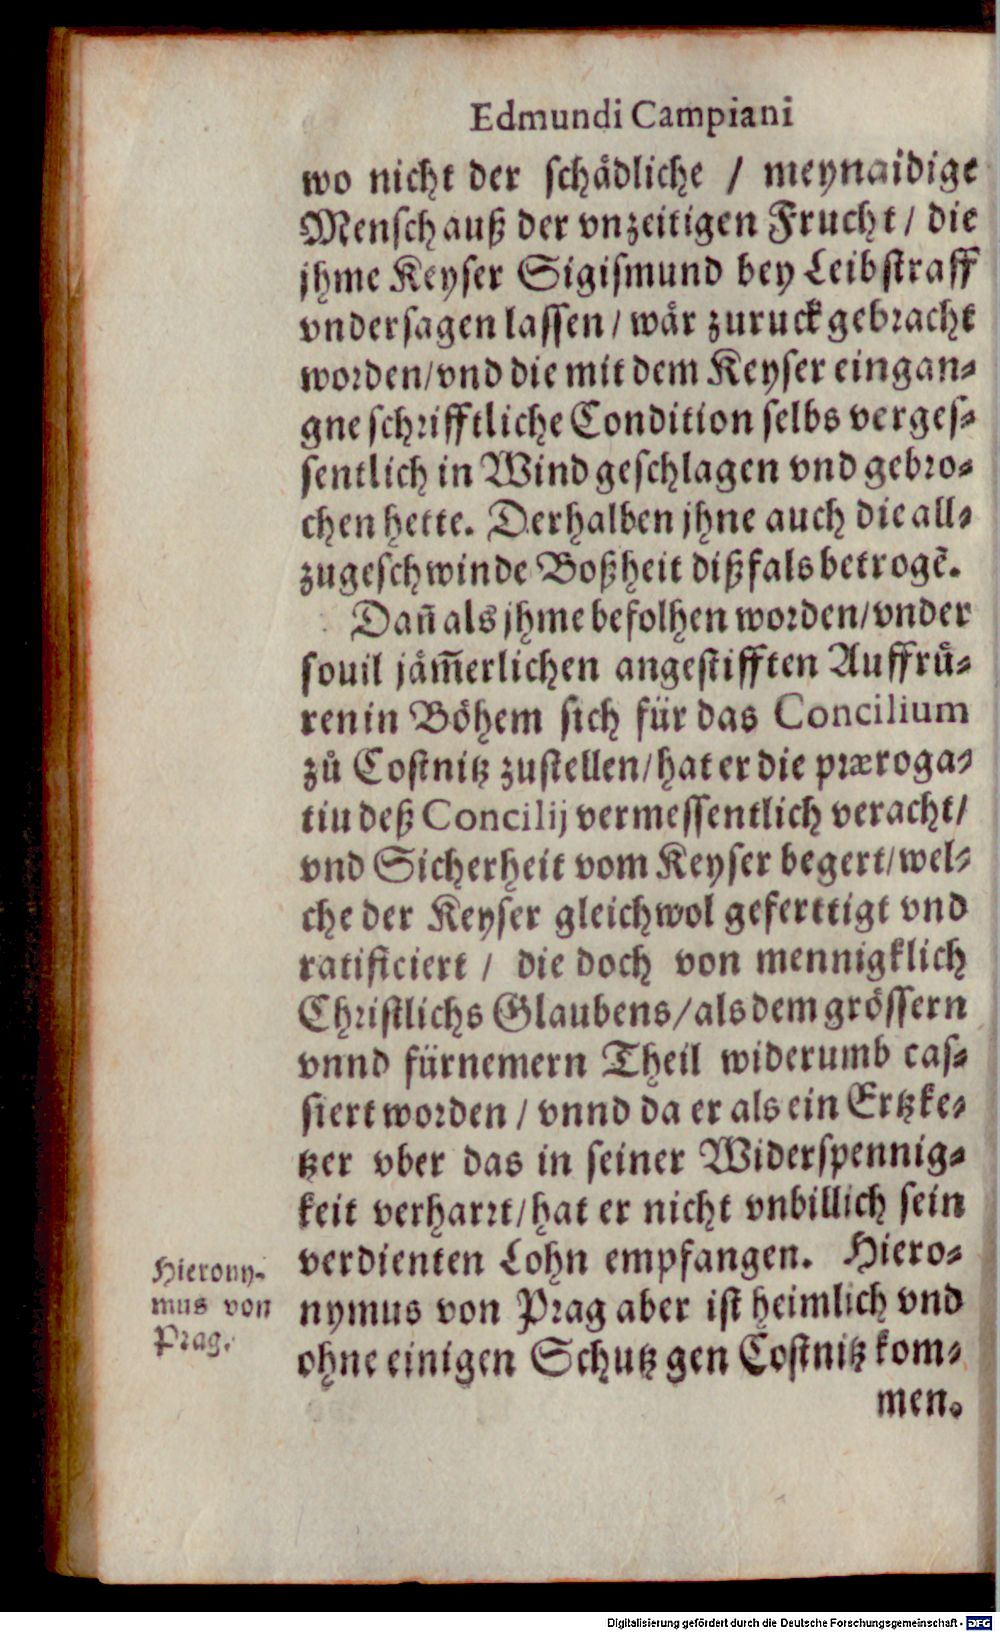 Edmundi Campiani
wo nicht der schådliche / meynaidige
Mensch auß der vnzeitigen Frucht / die
jhme Keyser Sigismund bey Leibstraff
vndersagen lassen / wår zuruck gebracht
worden / vnd die mit dem Keyser eingan-
gne schrifftliche Condition selbs verges-
sentlich in Wind geschlagen vnd gebro-
chen hette. Derhalben jhne auch die all-
zugeschwinde Boßheit dißfals betrogē.
Dañ als jhme befolhen worden / vnder
souil jåm̃erlichen angestifften Auffrů-
ren in Böhem sich für das Concilium
zů Costnitz zustellen / hat er die præroga-
tiu deß Concilij vermessentlich veracht /
vnd Sicherheit vom Keyser begert / wel-
che der Keyser gleichwol geferttigt vnd
ratificiert / die doch von mennigklich
Christlichs Glaubens / als dem grössern
vnnd fürnemern Theil widerumb cas-
siert worden / vnnd da er als ein Ertzke-
tzer vber das in seiner Widerspennig-
keit verharrt / hat er nicht vnbillich sein
verdienten Lohn empfangen. Hiero-
nymus von Prag aber ist heimlich vnd
ohne einigen Schutz gen Costnitz kom-
men.
Hierony-
mus von
Prag.
Digitalisierung gefördert durch die Deutsche Forschungsgemeinschaft - DFG